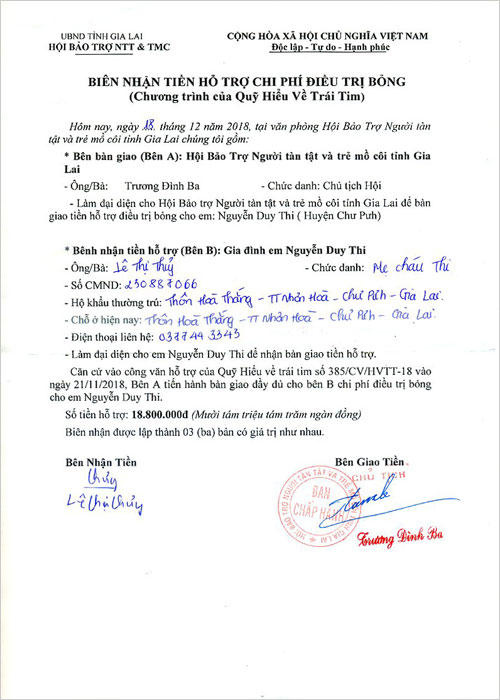 UBND TỈNH GIA LAI
HỘI BẢO TRỢ NTT & TMC
CỘNG HÒA XÃ HỘI CHỦ NGHĨA VIỆT NAM
Độc lập - Tự do - Hạnh phúc
BIÊN NHẬN TIỀN HỖ TRỢ CHI PHÍ ĐIỀU TRỊ BỎNG
(Chương trình của Quỹ Hiểu Về Trái Tim)
Hôm nay, ngày 18. tháng 12 năm 2018, tại văn phòng Hội Bảo Trợ Người tàn
tật và trẻ mồ côi tỉnh Gia Lai chúng tôi gồm:
* Bên bàn giao (Bên A): Hội Bảo Trợ Người tàn tật và trẻ mồ côi tỉnh Gia
Lai
- Ông/Bà: Trương Đình Ba - Chức danh: Chủ tịch Hội
- Làm đại diện cho Hội Bảo trợ Người tàn tật và trẻ mồ côi tỉnh Gia Lai để bàn
giao tiền hỗ trợ điều trị bỏng cho em: Nguyễn Duy Thi ( Huyện Chư Pưh)
* Bênh nhận tiền hỗ trợ (Bên B): Gia đình em Nguyễn Duy Thi
- Ông/Bà: Lê Thị Thủy - Chức danh: Mẹ cháu Thi
- Số CMND: 230887066
- Hộ khẩu thường trú: Thôn Hoà Thắng - TT Nhơn Hoà - Chư Pưh - Gia Lai.
- Chỗ ở hiện nay: Thôn Hoà Thắng - TT Nhơn Hoà - Chư Pưh - Gia Lai.
- Điện thoại liên hệ: 0377443345
- Làm đại diện cho em Nguyễn Duy Thi để nhận bàn giao tiền hỗ trợ.
Căn cứ vào công văn hỗ trợ của Quỹ Hiểu về trái tim số 385/CV/HVTT-18 vào
ngày 21/11/2018, Bên A tiến hành bàn giao đầy đủ cho bên B chi phí điều trị bỏng
cho em Nguyễn Duy Thi.
Số tiền hỗ trợ: 18.800.000đ (Mười tám triệu tám trăm ngàn đồng)
Biên nhận được lập thành 03 (ba) bản có giá trị như nhau.
Bên Nhận Tiền
Bên Giao Tiền
CHỦ TỊCH
Thủy
Lê Thị Thủy
BAN
CHẤP HÀNH
Trương Đình Ba